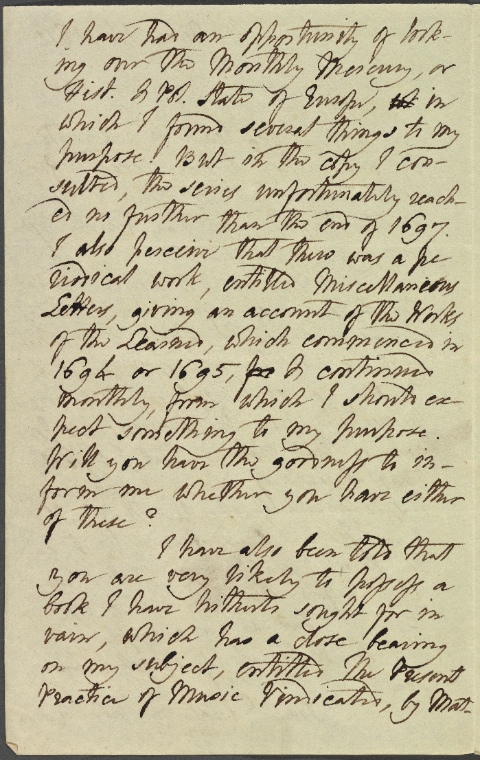 I have had an opportunity of look-
ing over the Monthly Mercury, or
Hist. & Pol. State of Europe, in
which I found several things to my
purpose. But in the copy I con-
sulted, the series unfortunately reach-
ed no further than the end of 1697.
I also perceive that there was a pe
riodical work, entitled Miscellaneous
Letters, giving an account of the Works
of the Learned, which commenced in
1694 or 1695, & continued
monthly, from which I should ex-
pect something to my purpose.
Will you have the goodness to in-
form me whether you have either
of these?
I have also been told that
you are very likely to possess a
book I have hitherto sought for in
vain, which has a close bearing
on my subject, entitled The Present
Practice of Music Vindicated, by Mat-